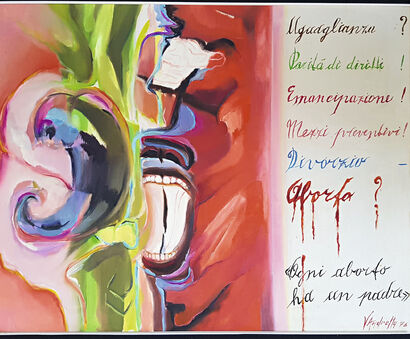 Uguaglianza ?
Parità di diritti !
Emancipazione !
Mezzi preventivi !
Divorzio -
Aborto ?
«Ogni aborto
ha un padre»